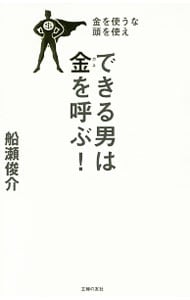 金を使うな
頭を使え
できる男は
金を呼ぶ!
船瀬俊介
主婦の友社